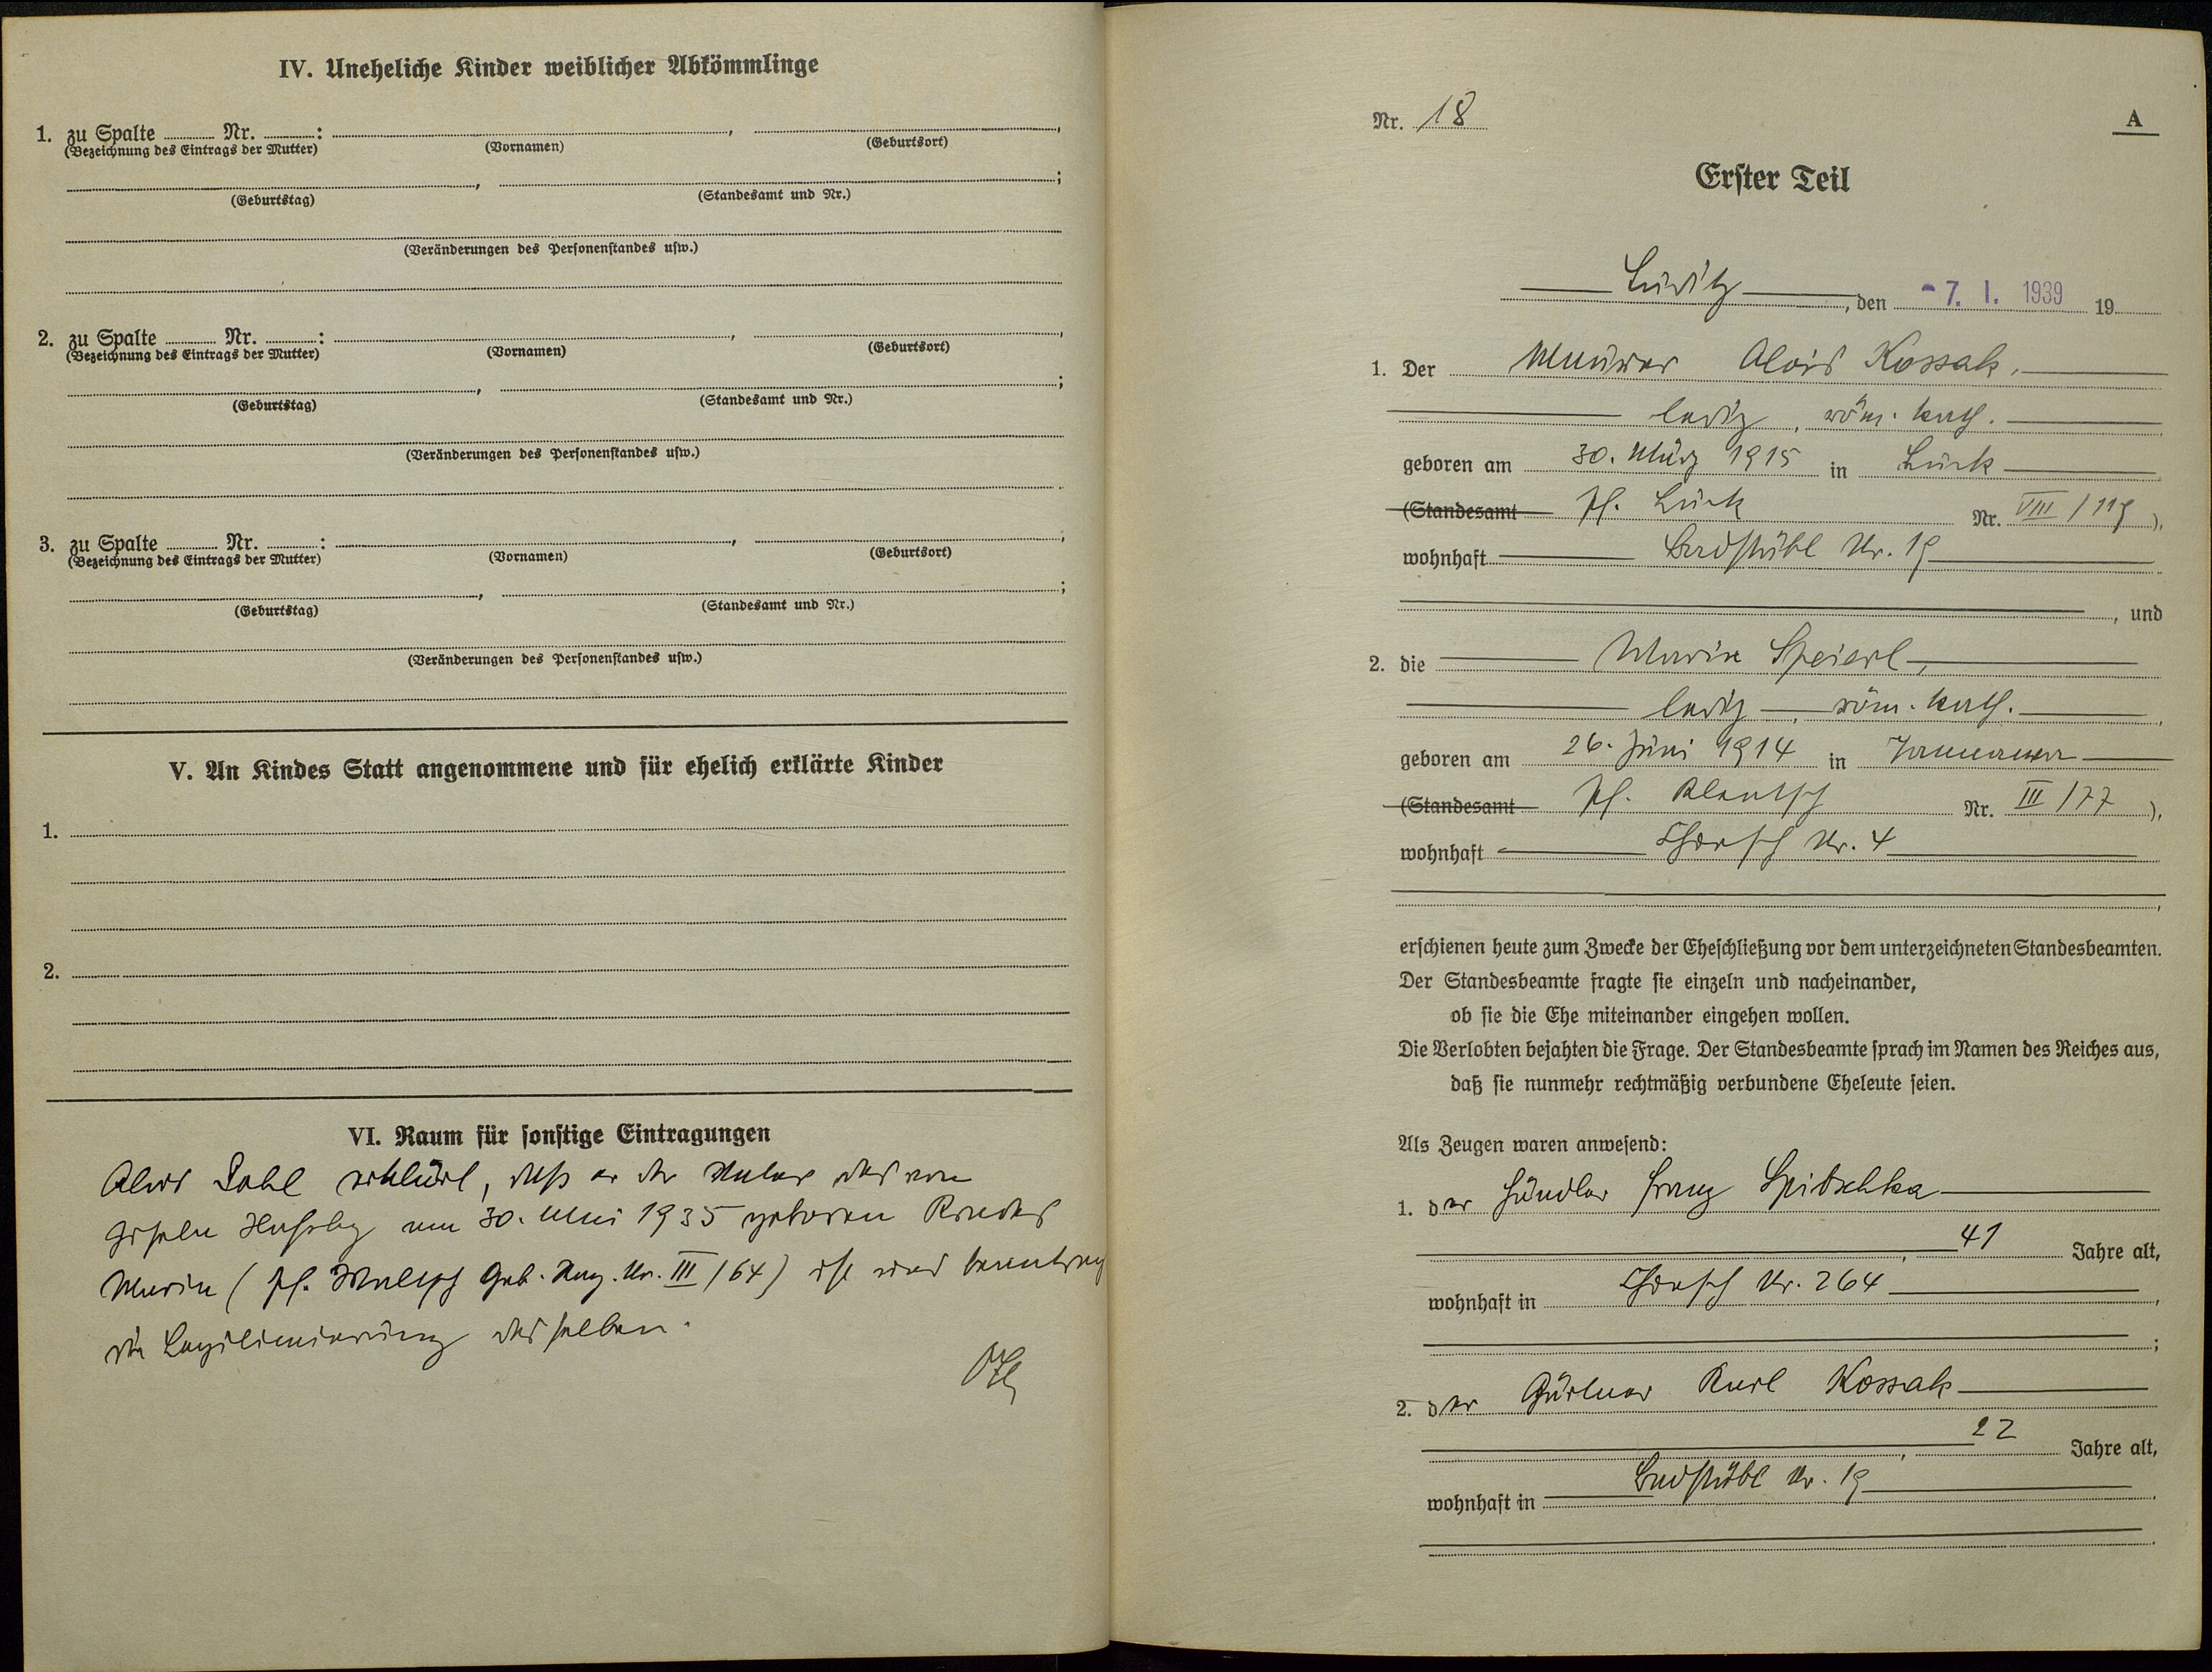 IV. Uneheliche Kinder weiblicher Abkömmlinge
1. zu Spalte Nr. : , ,
(Bezeichnung des Eintrags der Mutter) (Vornamen) (Geburtsort)
, ;
(Geburtstag) (Standesamt und Nr.)
(Veränderungen des Personenstandes usw.)
2. zu Spalte Nr. : , ,
(Bezeichnung des Eintrags der Mutter) (Vornamen) (Geburtsort)
, ;
(Geburtstag) (Standesamt und Nr.)
(Veränderungen des Personenstandes usw.)
3. zu Spalte Nr. : , ,
(Bezeichnung des Eintrags der Mutter) (Vornamen) (Geburtsort)
, ;
(Geburtstag) (Standesamt und Nr.)
(Veränderungen des Personenstandes usw.)
V. An Kindes Statt angenommene und für ehelich erklärte Kinder
1.
2.
VI. Raum für sonstige Eintragungen
Alois erklärt, daß er der Vater des von
am 30. Mai 1935 geboren Kindes
Maria (Pf. Geb. Nr. III/64) ist und beantragt
die Legitimierung desselben.
Nr. 18
A
Erster Teil
Luditz, den -7. I. 1939 19
1. Der Maurer Alois Kossak,
ledig, röm. kath.
geboren am 30. März 1915 in Lück
(Standesamt Pf. Lück Nr. VIII/117),
wohnhaft Badstübl Nr. 19
, und
2. die Maria Speierl,
ledig, röm. kath.
geboren am 26. Juni 1914 in
(Standesamt Pf. Klentsch Nr. III/77),
wohnhaft Nr. 4
erschienen heute zum Zwecke der Eheschließung vor dem unterzeichneten Standesbeamten.
Der Standesbeamte fragte sie einzeln und nacheinander,
ob sie die Ehe miteinander eingehen wollen.
Die Verlobten bejahten die Frage. Der Standesbeamte sprach im Namen des Reiches aus,
daß sie nunmehr rechtmäßig verbundene Eheleute seien.
Als Zeugen waren anwesend:
1. der Händler Franz Spitschka
, 41 Jahre alt,
wohnhaft in Nr. 264,
;
2. der Gärtner Karl Kossak
, 22 Jahre alt,
wohnhaft in Badstübl Nr. 19